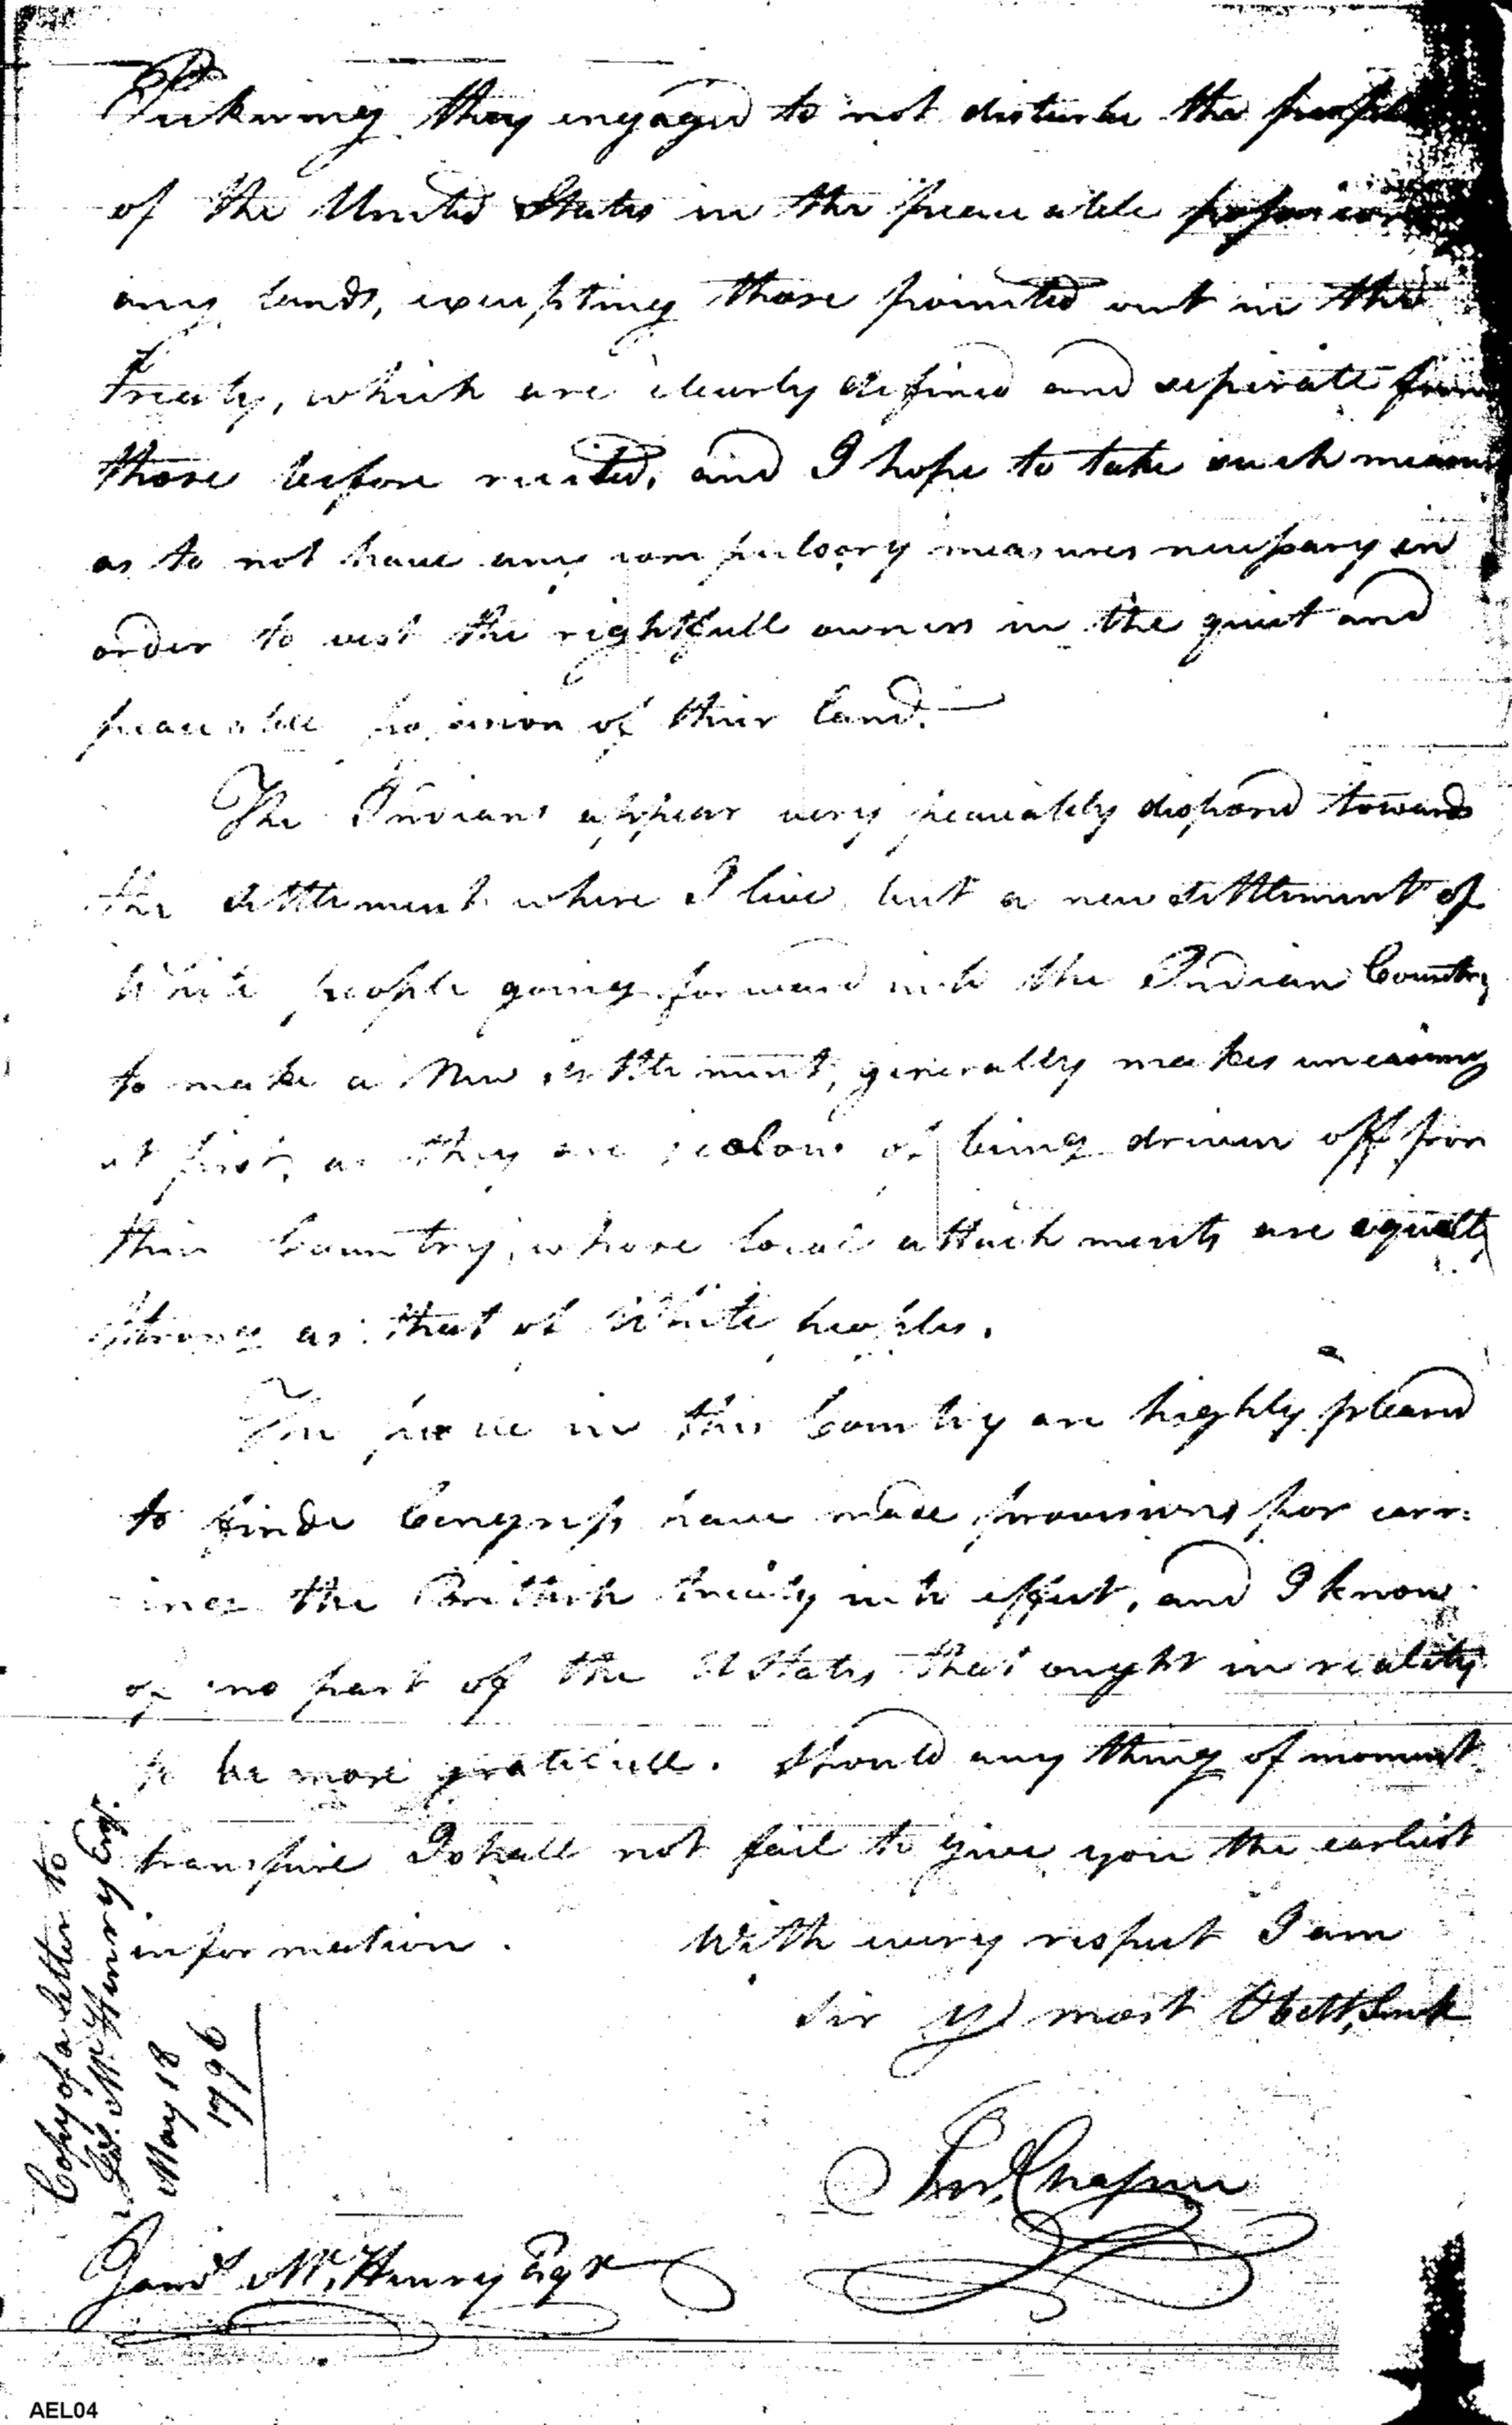 Pickering they engaged to not disturbe the people
of the United States in the peaceable possession
any lands, excepting those pointed out in the
treaty, which are clearly defined and seperate from
those before recited, and I hope to take such measures
as to not have any compulsory measures necessary in
order to vest the rightfull owners in the quiet and
peaceable possession of their land.
The Indians appear very peaceably disposed towards
the settlement where I live, but a new settlement of
White people going forward into the Indian Country
to make a New settlement, generally makes uneasiness
at first, as they are jealous of being driven off from
their Country, whose local attachments are equally
strong as that of White peoples.
The people in this Country are highly pleased
to finde Congress have made provisions for carr:
ing the Brittish treaty into effect, and I know
of no part of the U States that ought in reality
to be more gratefull. Should any thing of moment
transpire I shall not fail to give you the earliest
information. With every respect I am
Sir yr most Obett, Servt
Copy of a letter to
Js. McHenry Esqr.
May 18
1796
Isrl. Chapin
James McHenry Esqr
AEL04